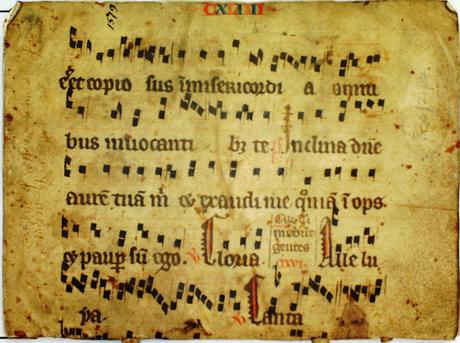 CXLIIII
1579
et copio sus ī misericordi a omni
bus inuocanti bꝫ te Inclina dn̄e
aurē tuā m̄ & exaudi me qm̄ īops
& paup sū ego. V Gloria. Alle lu
gentes
ya. V Canta